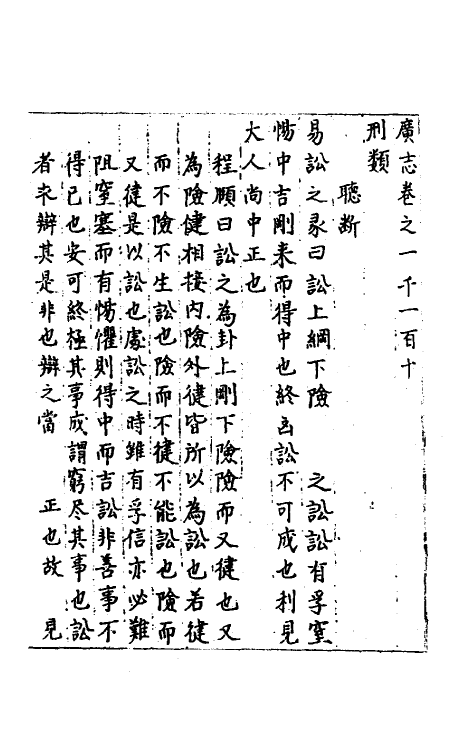 廣志卷之一千一百十
刑類
聽断
易訟之彖曰訟上綱下險　之訟訟有孚窒
惕中吉剛来而得中也終凶訟不可成也利見
大人尚中正也
程頤曰訟之為卦上剛下險險而又健也又
為險健相接内險外健皆所以為訟也若健
而不險不生訟也險而不健不能訟也險而
又健是以訟也處訟之時雖有孚信亦必難
阻窒塞而有惕懼則得中而吉訟非善事不
得已也安可終極其事成謂窮尽其事也訟
者求辯其是非也辯之當　正也故　見